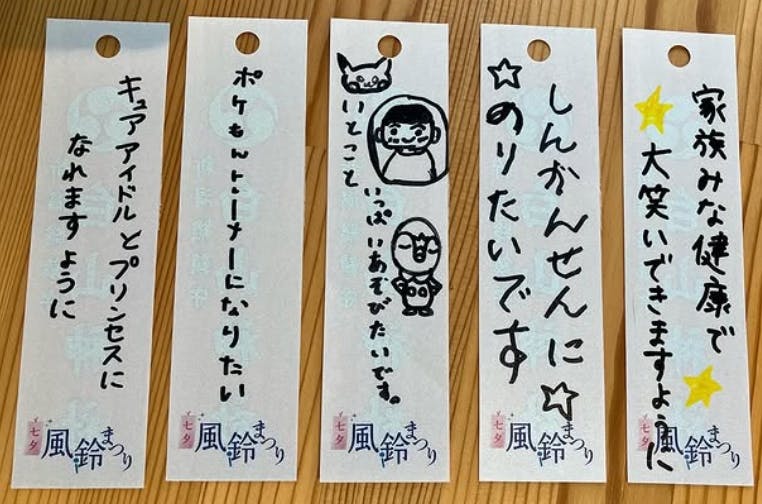 キュアアイドルとプリンセスに
なれますように
七夕
風鈴まつり
ポケもんトレーナーになりたい
七夕
風鈴まつり
いとこと
いっぱいあそびたいです。
七夕
風鈴まつり
しんかんせんに
のりたいです
七夕
風鈴まつり
家族みな健康で
大笑いできますように
七夕
風鈴まつり